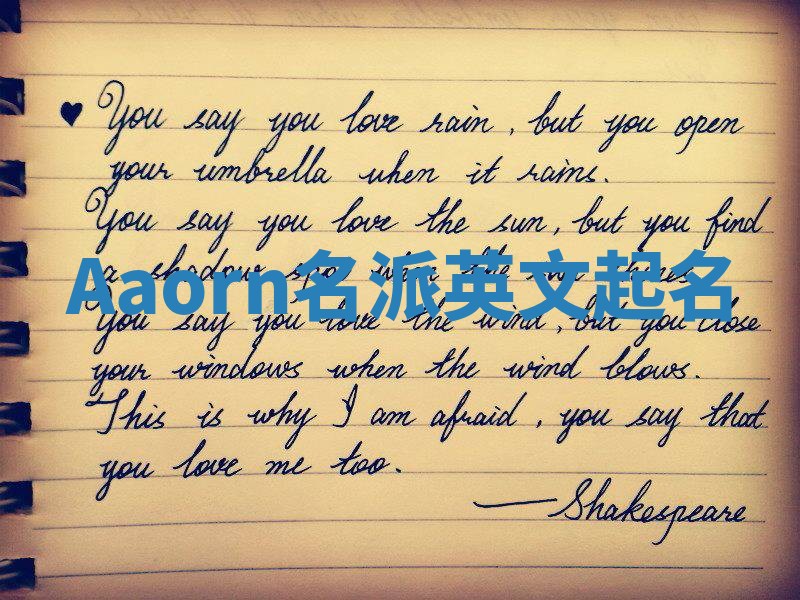 ♥ You say you love rain, but you open
your umbrella when it rains.
You say you love the sun, but you find
a shadow spot when the sun shines.
Aaorn名派英文起名
You say you love the wind, but you close
your windows when the wind blows.
This is why I am afraid, you say that
you love me too.
—Shakespeare